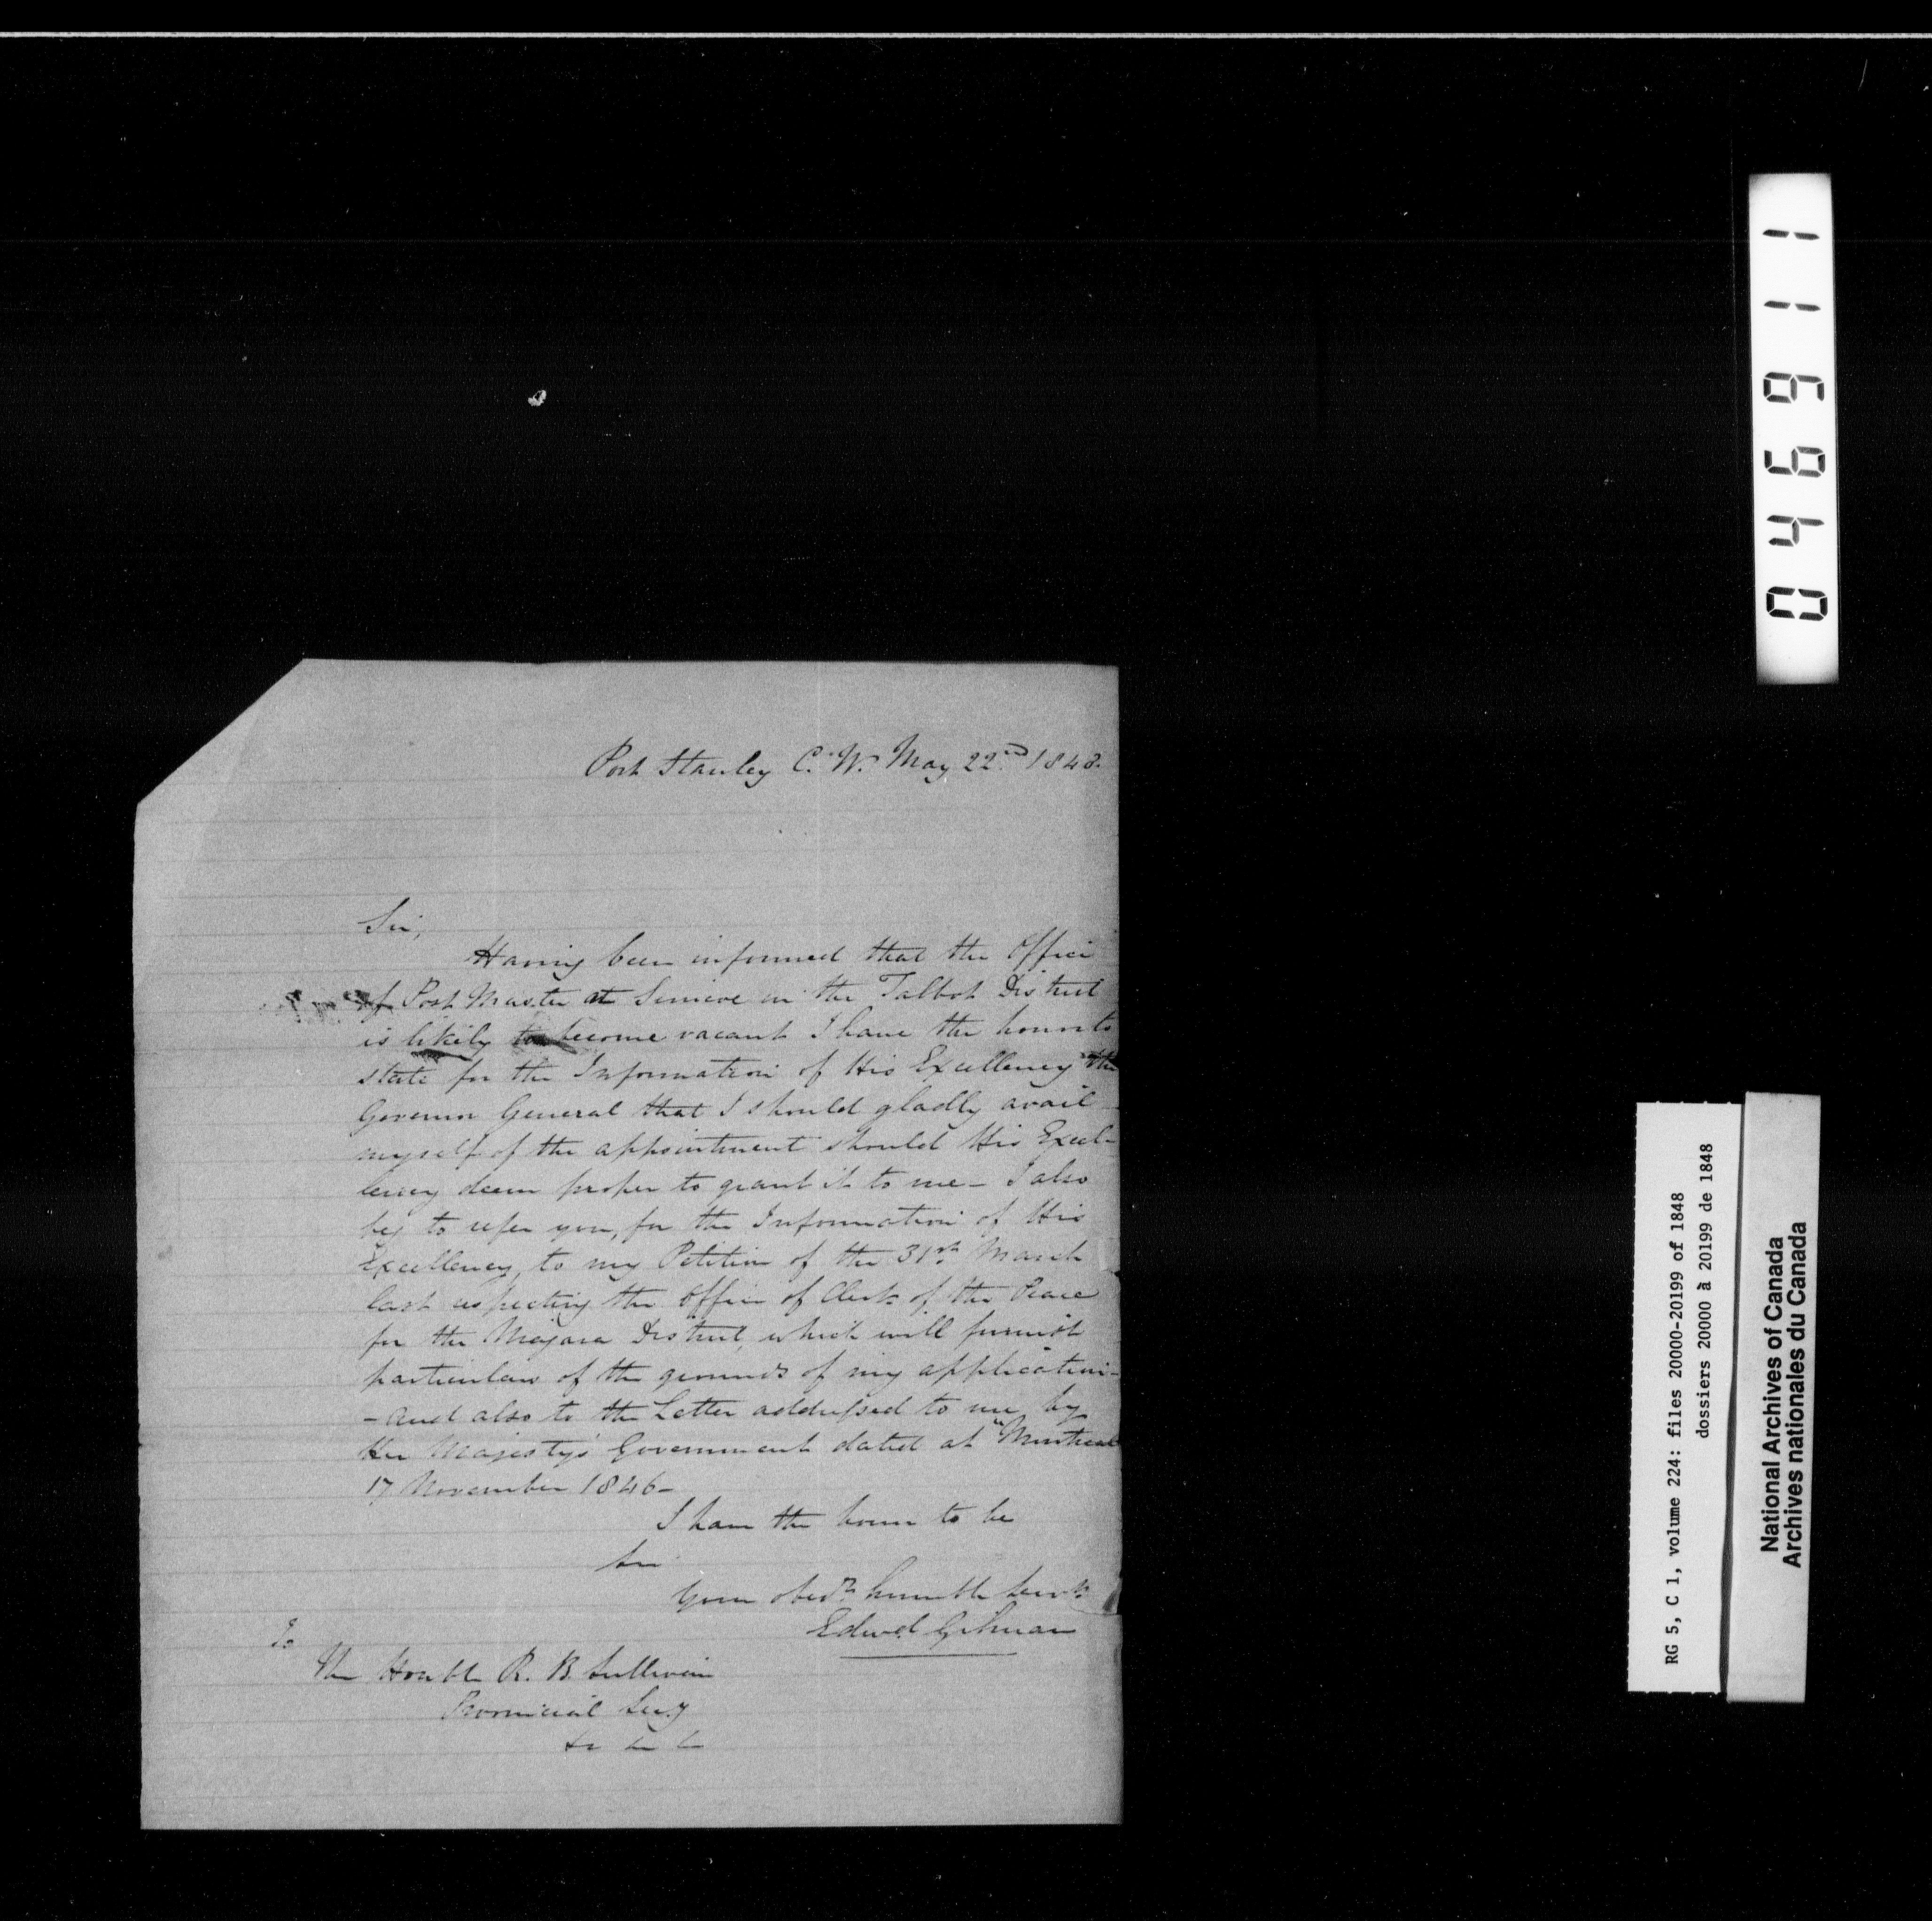 Port Stanley C. W. May 22nd 1848.
Sir,
Having been informed that the Office
of Post Master at Simcoe in the Talbot District
is likely to become vacant I have the honor to
state for the Information of His Excellency the
Governor General that I should gladly avail
myself of the appointment should His Excel-
lency deem proper to grant it to me - I also
beg to refer you, for the Information of His
Excellency, to my Petition of the 31st March
last respecting the Office of Clerk of the Peace
for the Niagara District, which will furnish
particulars of the grounds of my application -
- and also to the Letter addressed to me by
Her Majesty's Government dated at "Montreal
17 November 1846 -
I have the honor to be
Sir
Your obedt humble Servt
Edwd
To
The Honble R. B. Sullivan
Provincial Secy
&c &c &c
046911
RG 5, C 1, volume 224: files 20000-20199 of 1848
dossiers 20000 à 20199 de 1848
National Archives of Canada
Archives nationales du Canada